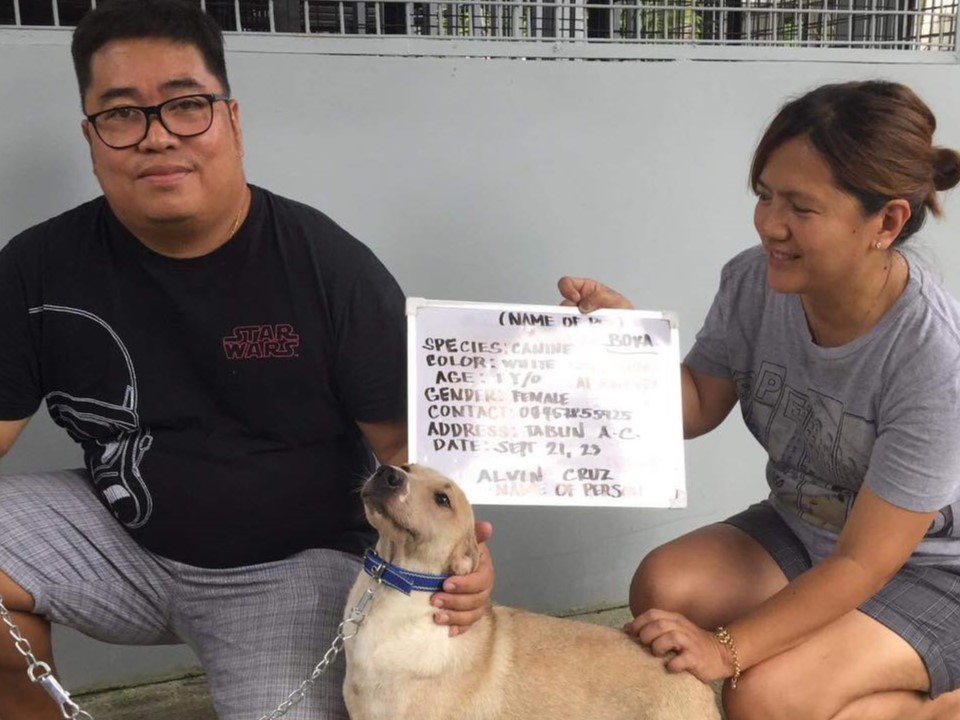 STAR
WARS
(NAME OF
BOYA
SPECIES: CANINE
COLOR: WHITE
AGE: 1 Y/O
GENDER: FEMALE
CONTACT:
ADDRESS: TABUN A.C.
DATE: SEPT 21, 23
ALVIN CRUZ
NAME OF PERSON